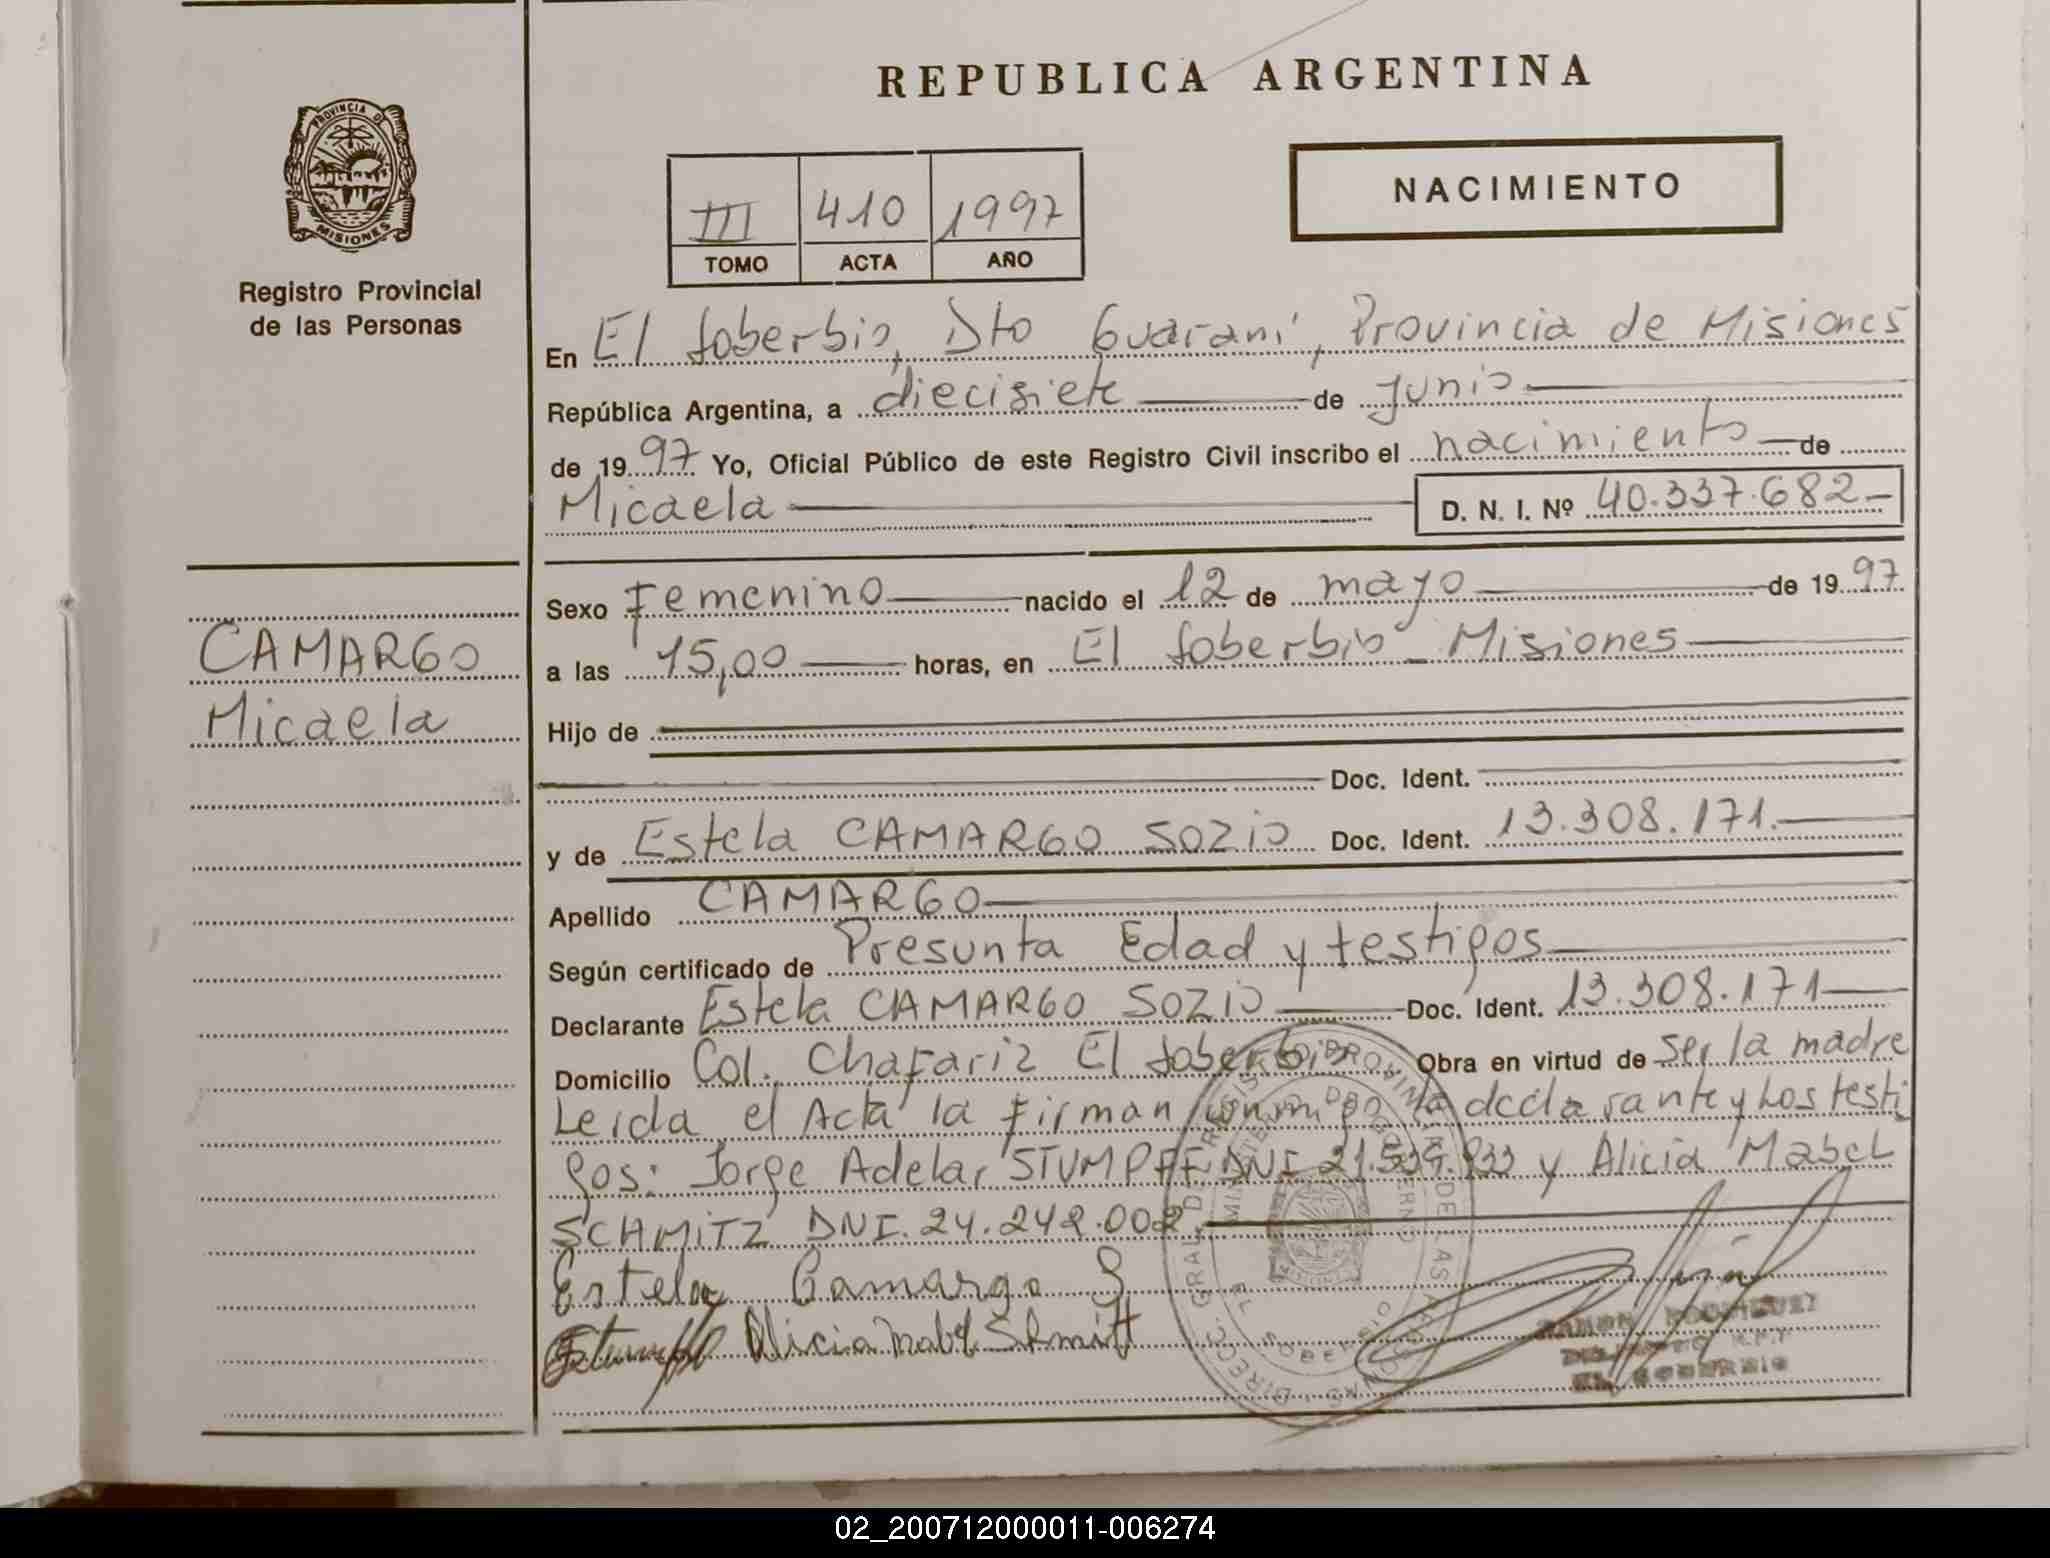 REPUBLICA ARGENTINA
PROVINCIA DE
MISIONES
Registro Provincial
de las Personas
III 410 1997
TOMO ACTA AÑO
NACIMIENTO
En El Soberbio, Dto Guaraní, Provincia de Misiones
República Argentina, a diecisiete de Junio
de 1997 Yo, Oficial Público de este Registro Civil inscribo el nacimiento de
Micaela D. N. I. Nº 40.337.682
CAMARGO
Micaela
Sexo Femenino nacido el 12 de mayo de 1997
a las 15,00 horas, en El Soberbio Misiones
Hijo de
Doc. Ident.
y de Estela CAMARGO SOZIO Doc. Ident. 13.308.171.
Apellido CAMARGO
Según certificado de Presunta Edad y testigos
Declarante Estela CAMARGO SOZIO Doc. Ident. 13.308.171
Domicilio Col. Chafariz El Soberbio Obra en virtud de ser la madre
Leida el Acta la Firman conmigo la declarante y Los testi
gos: Jorge Adelar STUMPFF DNI y Alicia Mabel
SCHMITZ DNI. 24.242.002
Estela Camargo S
Alicia Mabel Schmitt
RAMON RODRIGUEZ
EL SOBERBIO
02_200712000011-006274